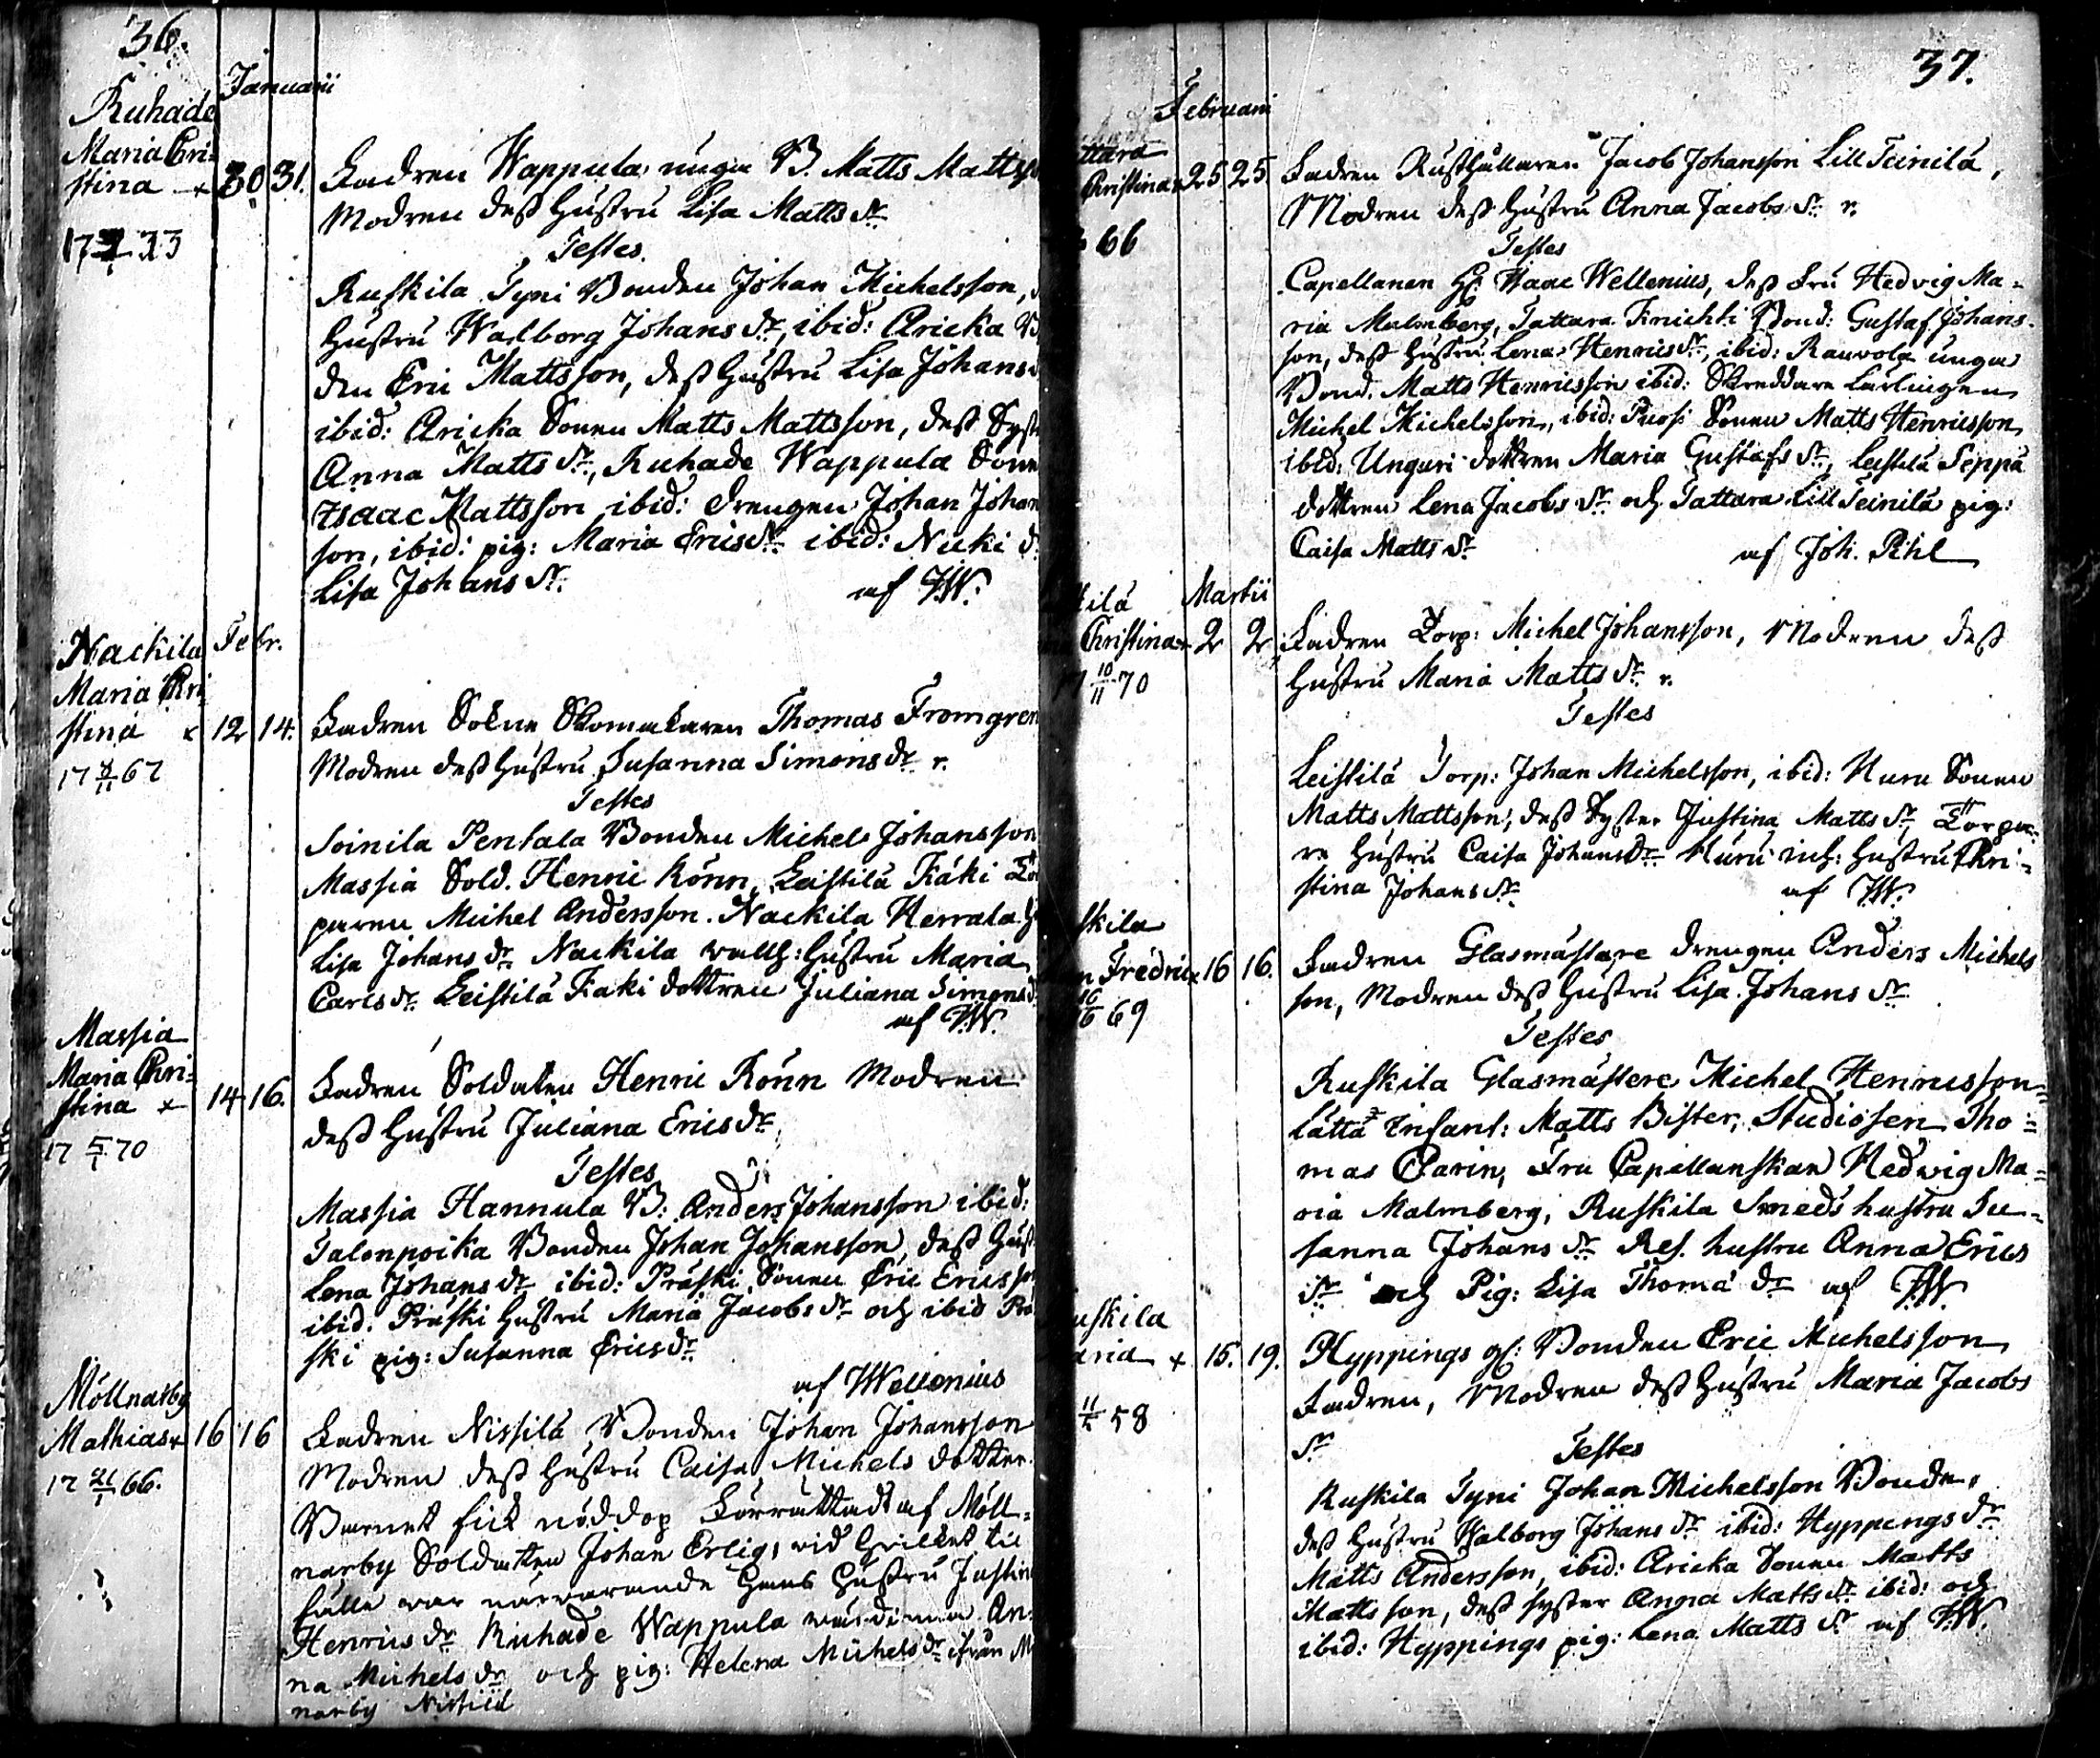 36.
Januarii
Ruhade
Maria Chri-
stina + 30 31. Fadren Wappula unga B. Matts Mattss
Modren dess hustru Lisa Matts dr
17 33
Testes.
Ruskila Tyni Bonden Johan Michelsson,
hustru Walborg Johans dr, ibid: Aricka
den Eric Mattsson, dess hustru Lisa Johans
ibid: Aricka Sonen Matts Mattsson, dess Syst
Anna Matts dr, Ruhade Wappula Sone
Isaac Mattsson ibid: drengen Johan Johan
son, ibid: pig: Maria Erics dr ibid: Nicki d.
Lisa Johans dr. af IW.
Nackila Febr.
Maria Chri
stina x 12 14. Fadren Sokne Skomakaren Thomas Fromgren
Modren dess hustru Susanna Simons dr v.
17 67
Testes
Soinila Pentala Bonden Michel Johansson
Massia Sold. Henric Rönn, Leistilä Käki Tor
paren Michel Andersson. Nackila Herrala
Lisa Johans dr Nackila vallh: hustru Maria
Carls dr Leistilä Kaki dottren Juliana Simons d
af IW.
Massia
Maria Chri-
stina + 14 16. Fadren Soldaten Henric Rönn Modren
dess hustru Juliana Erics dr
17 5/1 70
Testes
Massia Hannula B: Anders Johansson ibid:
Talonpoika Bonden Johan Johansson, dess hust
Lena Johans dr ibid: Präski Sonen Eric Ericsson
ibid. Präski hustru Maria Jacobs dr och ibid Prä
ski pig: Susanna Erics dr
af IWellenius
Möllnarby
Mathias + 16 16 Fadren Nissilä Bonden Johan Johansson
Modren dess hustru Caisa Michels dotter.
17 21/1 66.
Barnet fick nöddop förrättadt af Möll-
narby Soldaten Johan Erlig, vid hvilket til
fälle var närvarande hans hustru Justin
Henrics dr Ruhade Wappula värdinna An-
na Michels dr och pig: Helena Michels dr ifrån M
narby Nissilä
37.
Februarii
ttara
Christina + 25 25 Fadren Rusthållaren Jacob Johansson Lill Teinilä,
Modren dess hustru Anna Jacobs dr v.
66
Testes
Capellanen Hr Isaac Wellenius, dess Fru Hedvig Ma-
ria Malmberg, Tattara Knichti Bond: Gustaf Johans-
son, dess hustru Lena Henrics dr, ibid: Rauvola unga
Bond. Matts Henricsson ibid: Skreddare Lärlingen
Michel Michelsson, ibid: Prosi Sonen Matts Henricsson
ibid: Unguri dottren Maria Gustafs dr, Leistilä Seppä
dottren Lena Jacobs dr och Tattara Lill Teinilä pig:
Caisa Matts dr af Joh. Pihl
tilä Martii
Christina + 2 2 Fadren Torp: Michel Johansson, Modren dess
hustru Maria Matts dr v.
17 10/11 70
Testes
Leistilä Torp: Johan Michelsson, ibid: Nuru Sonen
Matts Mattsson, dess Syster Justina Matts dr, Torpa-
re hustru Caisa Johans dr Nuru inh: hustru Chri-
stina Johans dr af IW.
skila
n Fredric + 16 16. Fadren Glasmästare drengen Anders Michels
son, Modren dess hustru Lisa Johans dr
69
Testes
Ruskila Glasmästere Michel Henricsson
Lättä Infant: Matts Bister, Studiosen Tho-
mas Clarin, Fru Capellanskan Hedvig Ma-
ria Malmberg, Ruskila Smeds hustru Su-
sanna Johans dr Res. hustru Anna Erics
dr och Pig: Lisa Thoma dr af IW
uskila
aria + 15. 19. Hyppings gl: Bonden Eric Michelsson
Fadren, Modren dess hustru Maria Jacobs
dr
58
Testes
Ruskila Tyni Johan Michelsson Bonde,
dess hustru Walborg Johans dr ibid: Hyppings dr
Matts Andersson, ibid: Aricka Sonen Matts
Mattsson, dess syster Anna Matts dr ibid: och
ibid: Hyppings pig: Lena Matts dr af IW.